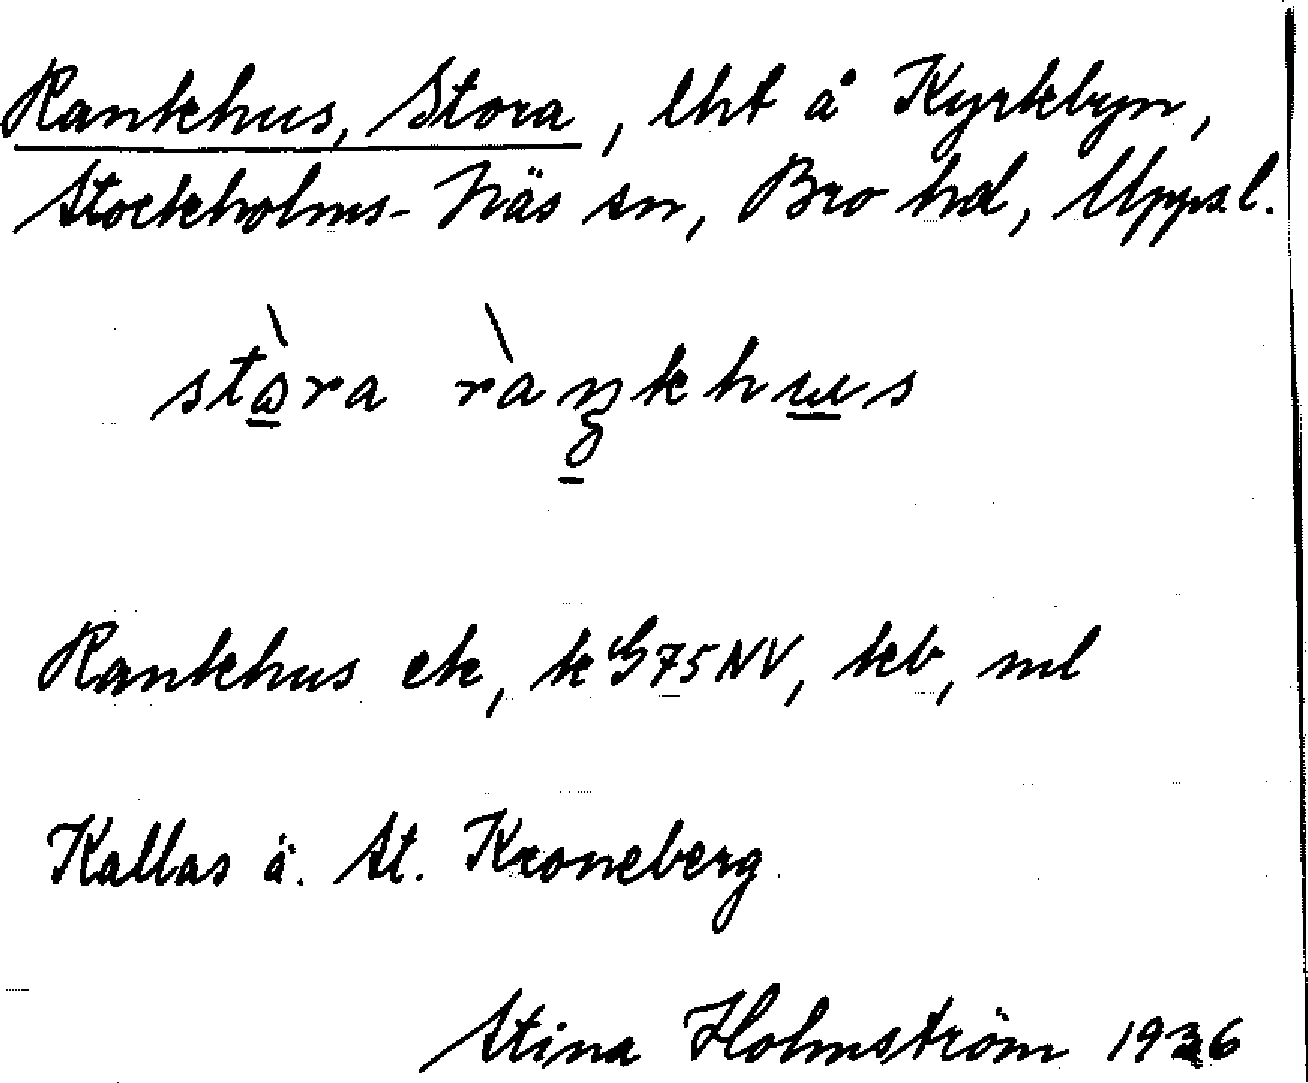 Rankhus, Stora, lht å Kyrkbyn,
Stockholms-Näs sn, Bro hd, Uppsl.
stòra ràŋkhus
Rankhus ek, k G75NV, kb, ml
Kallas ä. St. Kroneberg.
Stina Holmström 1936